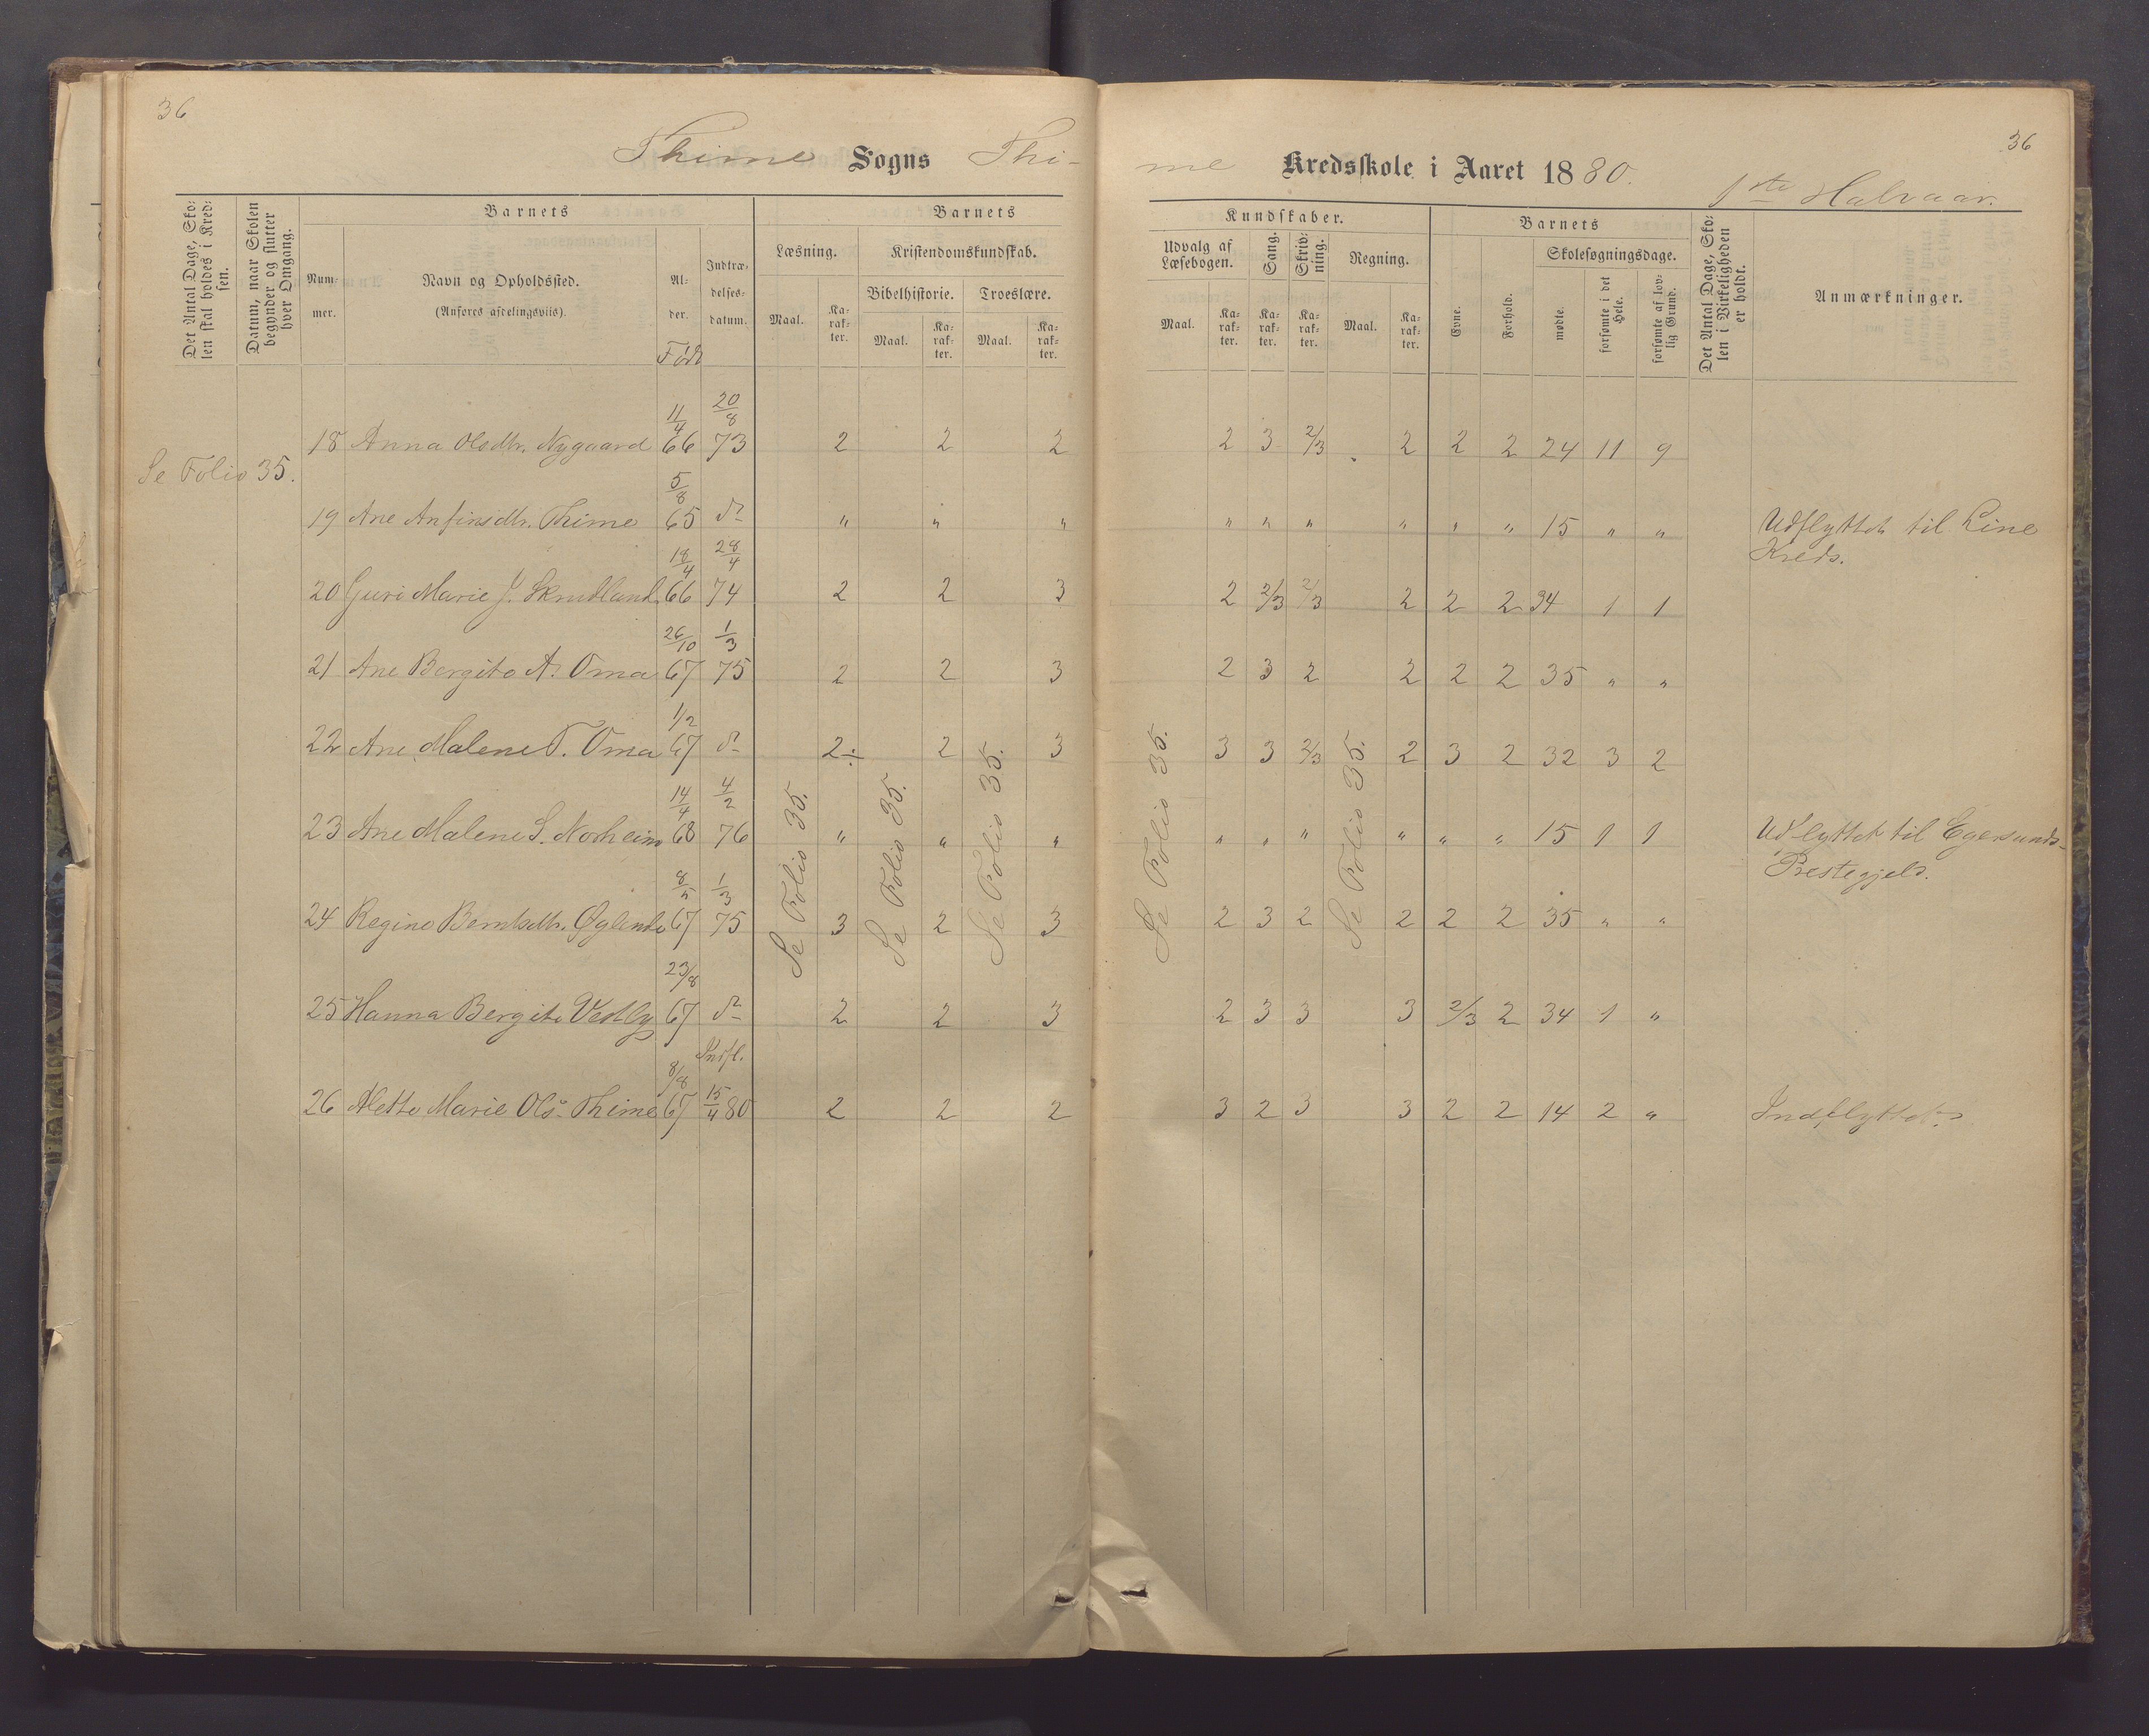 36
36
Thime Sogns Thi-
me Kredsskole i Aaret 1880.
1ste Halvaar.
Det Antal Dage, Skolen skal holdes i Kredsen.
Datum, naar Skolen begynder og slutter hver Omgang.
Barnets
Nummer.
Navn og Opholdssted.
(Anføres afdelingsviis).
Alder.
Født
Indtrædelsesdatum.
Barnets
Læsning.
Maal.
Karakter.
Kristendomskundskab.
Bibelhistorie.
Maal.
Karakter.
Troeslære.
Maal.
Karakter.
Kundskaber.
Udvalg af Læsebogen.
Maal.
Karakter.
Sang.
Karakter.
Skrivning.
Karakter.
Regning.
Maal.
Karakter.
Barnets
Evne.
Forhold.
Skolesøgningsdage.
mødte.
forsømte i det Hele.
forsømte af lovlig Grund.
Det Antal Dage, Skolen i Virkeligheden er holdt.
Anmærkninger.
Se Folio 35.
18 Anna Olsdtr. Nygaard 11/4 66 20/8 73 2 2 2 2 3 2/3 2 2 2 24 11 9
19 Ane Anfinsdtr. Thime 5/8 65 do " " " " " " " " " 15 " " Udflyttet til Line
Kreds.
20 Guri Marie J. Skrudland 18/4 66 28/4 74 2 2 3 2 2/3 2/3 2 2 2 34 1 1
21 Ane Bergite A. Oma 26/10 67 1/3 75 2 2 3 2 3 2 2 2 2 35 " "
22 Ane Malene T. Oma 1/2 67 do 2÷ 2 3 3 3 2/3 2 3 2 32 3 2
23 Ane Malene S. Norheim 14/4 68 4/2 76 " " " " " " " " " 15 1 1 Udflyttet til Egersunds-
Prestegjeld.
24 Regine Berntsdtr. Øglende 8/5 67 1/3 75 3 2 3 2 3 2 2 2 2 35 " "
25 Hanna Bergite Vestly 23/8 67 do 2 2 3 2 3 3 3 2/3 2 34 1 "
26 Alette Marie Ols. Thime 8/8 67 Indfl. 15/4 80 2 2 2 3 2 3 3 2 2 14 2 " Indflyttet.
Se Folio 35.
Se Folio 35.
Se Folio 35.
Se Folio 35.
Se Folio 35.